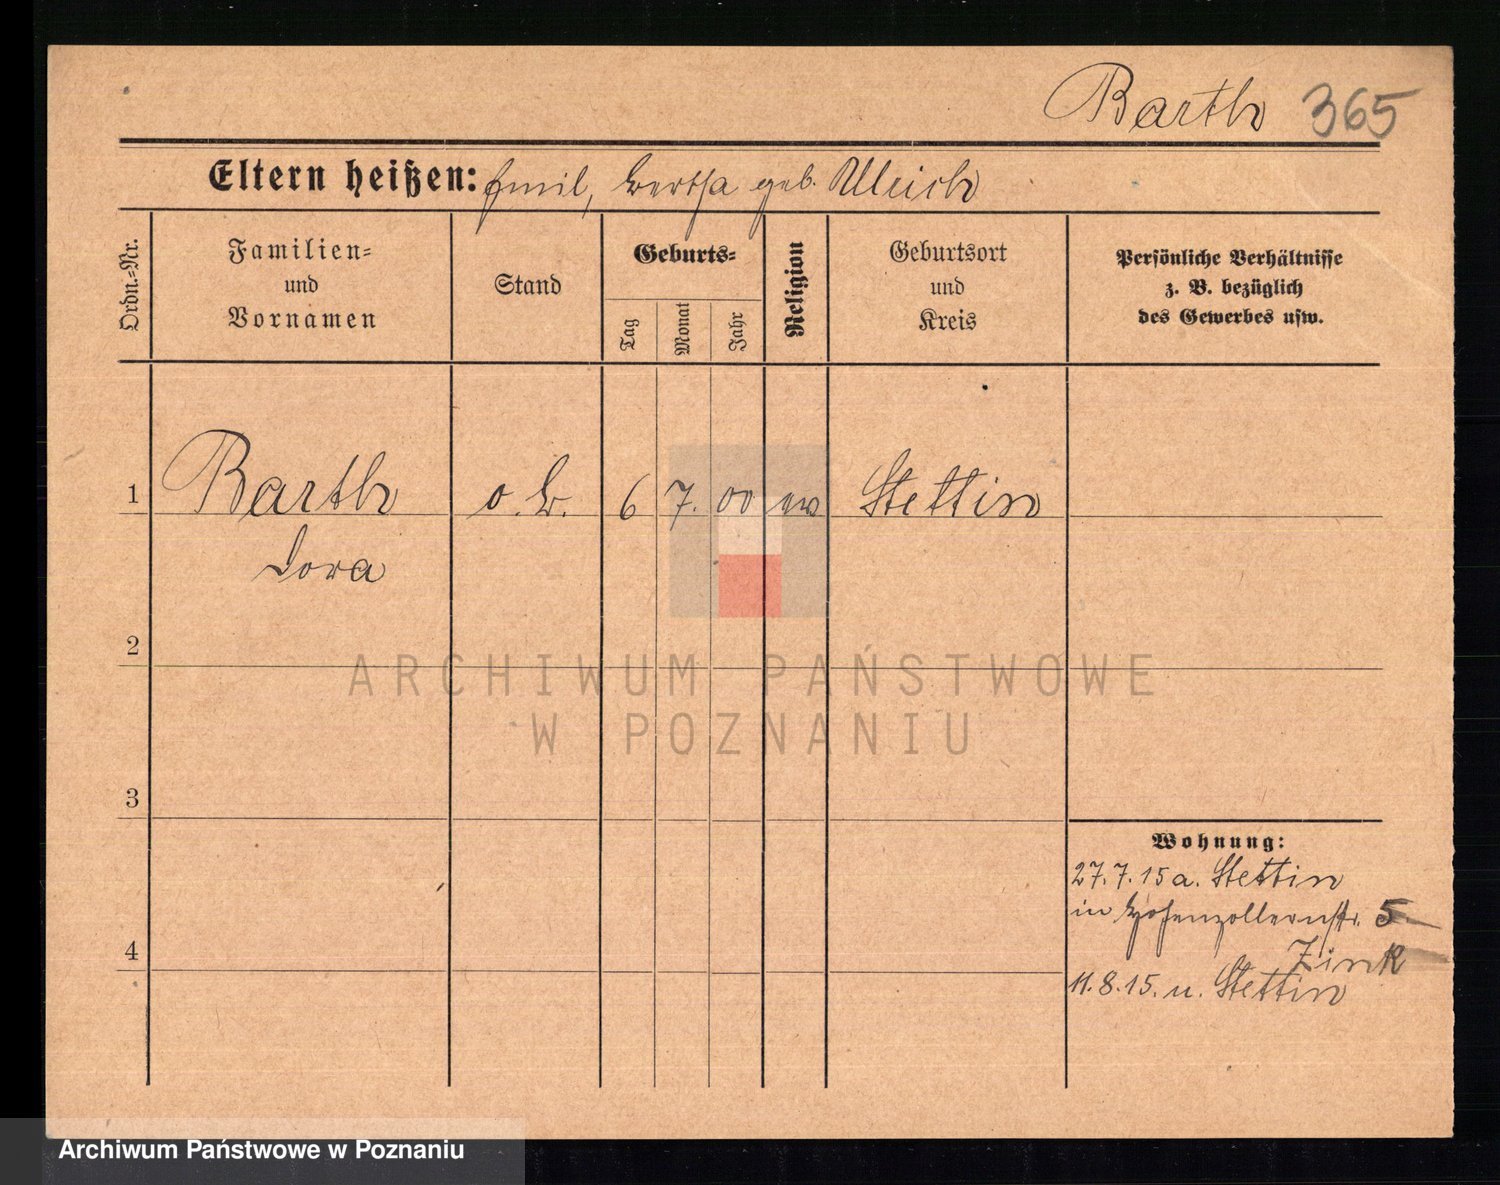 Barth 365
Eltern heißen: Emil, Bertha geb. Ullrich
Ordn.-Nr.
Familien-
und
Vornamen
Stand
Geburts-
Tag
Monat
Jahr
Religion
Geburtsort
und
Kreis
Persönliche Verhältnisse
z. B. bezüglich
des Gewerbes usw.
1 Barth o. B. 6 7. 00 ev Stettin
Dora
2
ARCHIWUM PAŃSTWOWE
W POZNANIU
3
Wohnung:
27.7.15 a. Stettin
in Hohenzollernstr. 5
Zink
4
11.8.15. u. Stettin
Archiwum Państwowe w Poznaniu